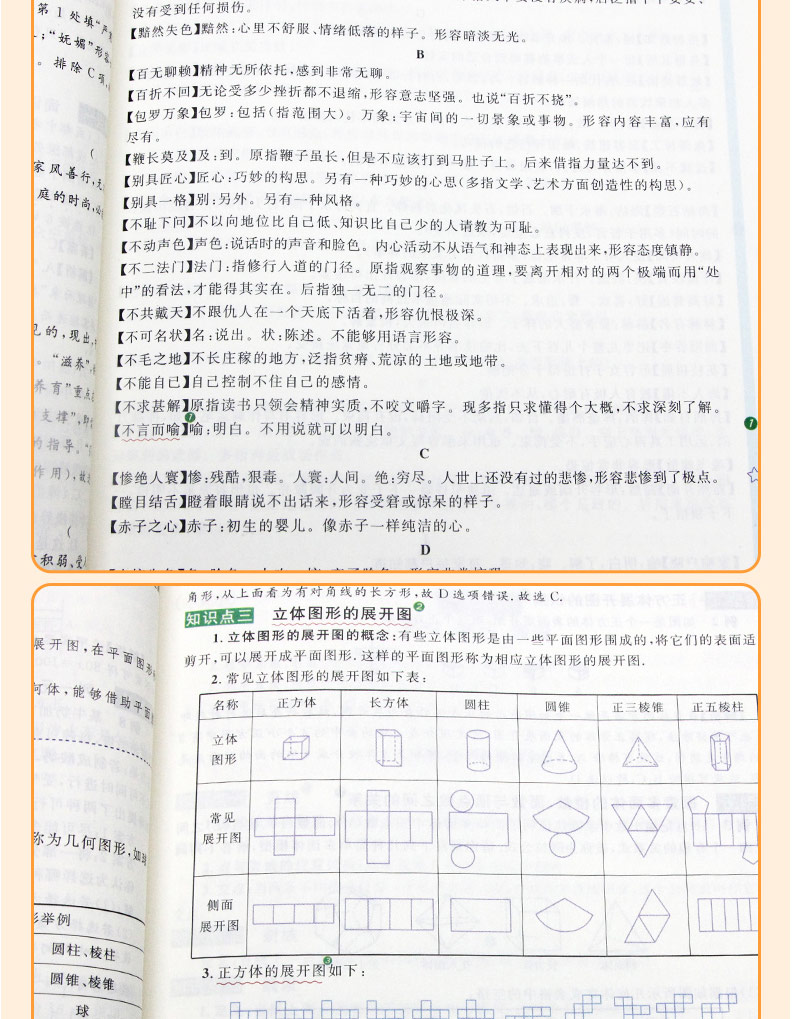 第 1 处填“严
没有受到任何损伤。
【黯然失色】黯然:心里不舒服、情绪低落的样子。形容暗淡无光。
;“妩媚”形容
B
。排除 C 项,
【百无聊赖】精神无所依托,感到非常无聊。
【百折不回】无论受多少挫折都不退缩,形容意志坚强。也说“百折不挠”。
【包罗万象】包罗:包括(指范围大)。万象:宇宙间的一切景象或事物。形容内容丰富,应有
尽有。
(
【鞭长莫及】及:到。原指鞭子虽长,但是不应该打到马肚子上。后来借指力量达不到。
家风善行,
【别具匠心】匠心:巧妙的构思。另有一种巧妙的心思(多指文学、艺术方面创造性的构思)。
庭的时尚,
【别具一格】别:另外。另有一种风格。
【不耻下问】不以向地位比自己低、知识比自己少的人请教为可耻。
【不动声色】声色:说话时的声音和脸色。内心活动不从语气和神态上表现出来,形容态度镇静。
【不二法门】法门:指修行人道的门径。原指观察事物的道理,要离开相对的两个极端而用“处
中”的看法,才能得其实在。后指独一无二的门径。
【不共戴天】不跟仇人在一个天底下活着,形容仇恨极深。
见的,现出
【不可名状】名:说出。状:陈述。不能够用语言形容。
。“滋养”
【不毛之地】不长庄稼的地方,泛指贫瘠、荒凉的土地或地带。
养育”重点
【不能自已】自己控制不住自己的感情。
支撑”,即
【不求甚解】原指读书只领会精神实质,不咬文嚼字。现多指只求懂得个大概,不求深刻了解。
的指导。
【不言而喻】喻:明白。不用说就可以明白。
C
作用),故
【惨绝人寰】惨:残酷,狠毒。人寰:人间。绝:穷尽。人世上还没有过的悲惨,形容悲惨到了极点。
【瞠目结舌】瞪着眼睛说不出话来,形容受窘或惊呆的样子。
(
【赤子之心】赤子:初生的婴儿。像赤子一样纯洁的心。
积弱、受
D
角形,从上面看为有对角线的长方形,故 D 选项错误.故选 C.
知识点三 立体图形的展开图
1. 立体图形的展开图的概念:有些立体图形是由一些平面图形围成的,将它们的表面适
剪开,可以展开成平面图形. 这样的平面图形称为相应立体图形的展开图.
展开图,在平面图形
2. 常见立体图形的展开图如下表:
何体,能够借助平面
名称 正方体 长方体 圆柱 圆锥 正三棱锥 正五棱柱
立体
图形
常见
展开图
称为几何图形,如
侧面
展开图
形举例
圆柱、棱柱
3. 正方体的展开图如下:
圆锥、棱锥
球